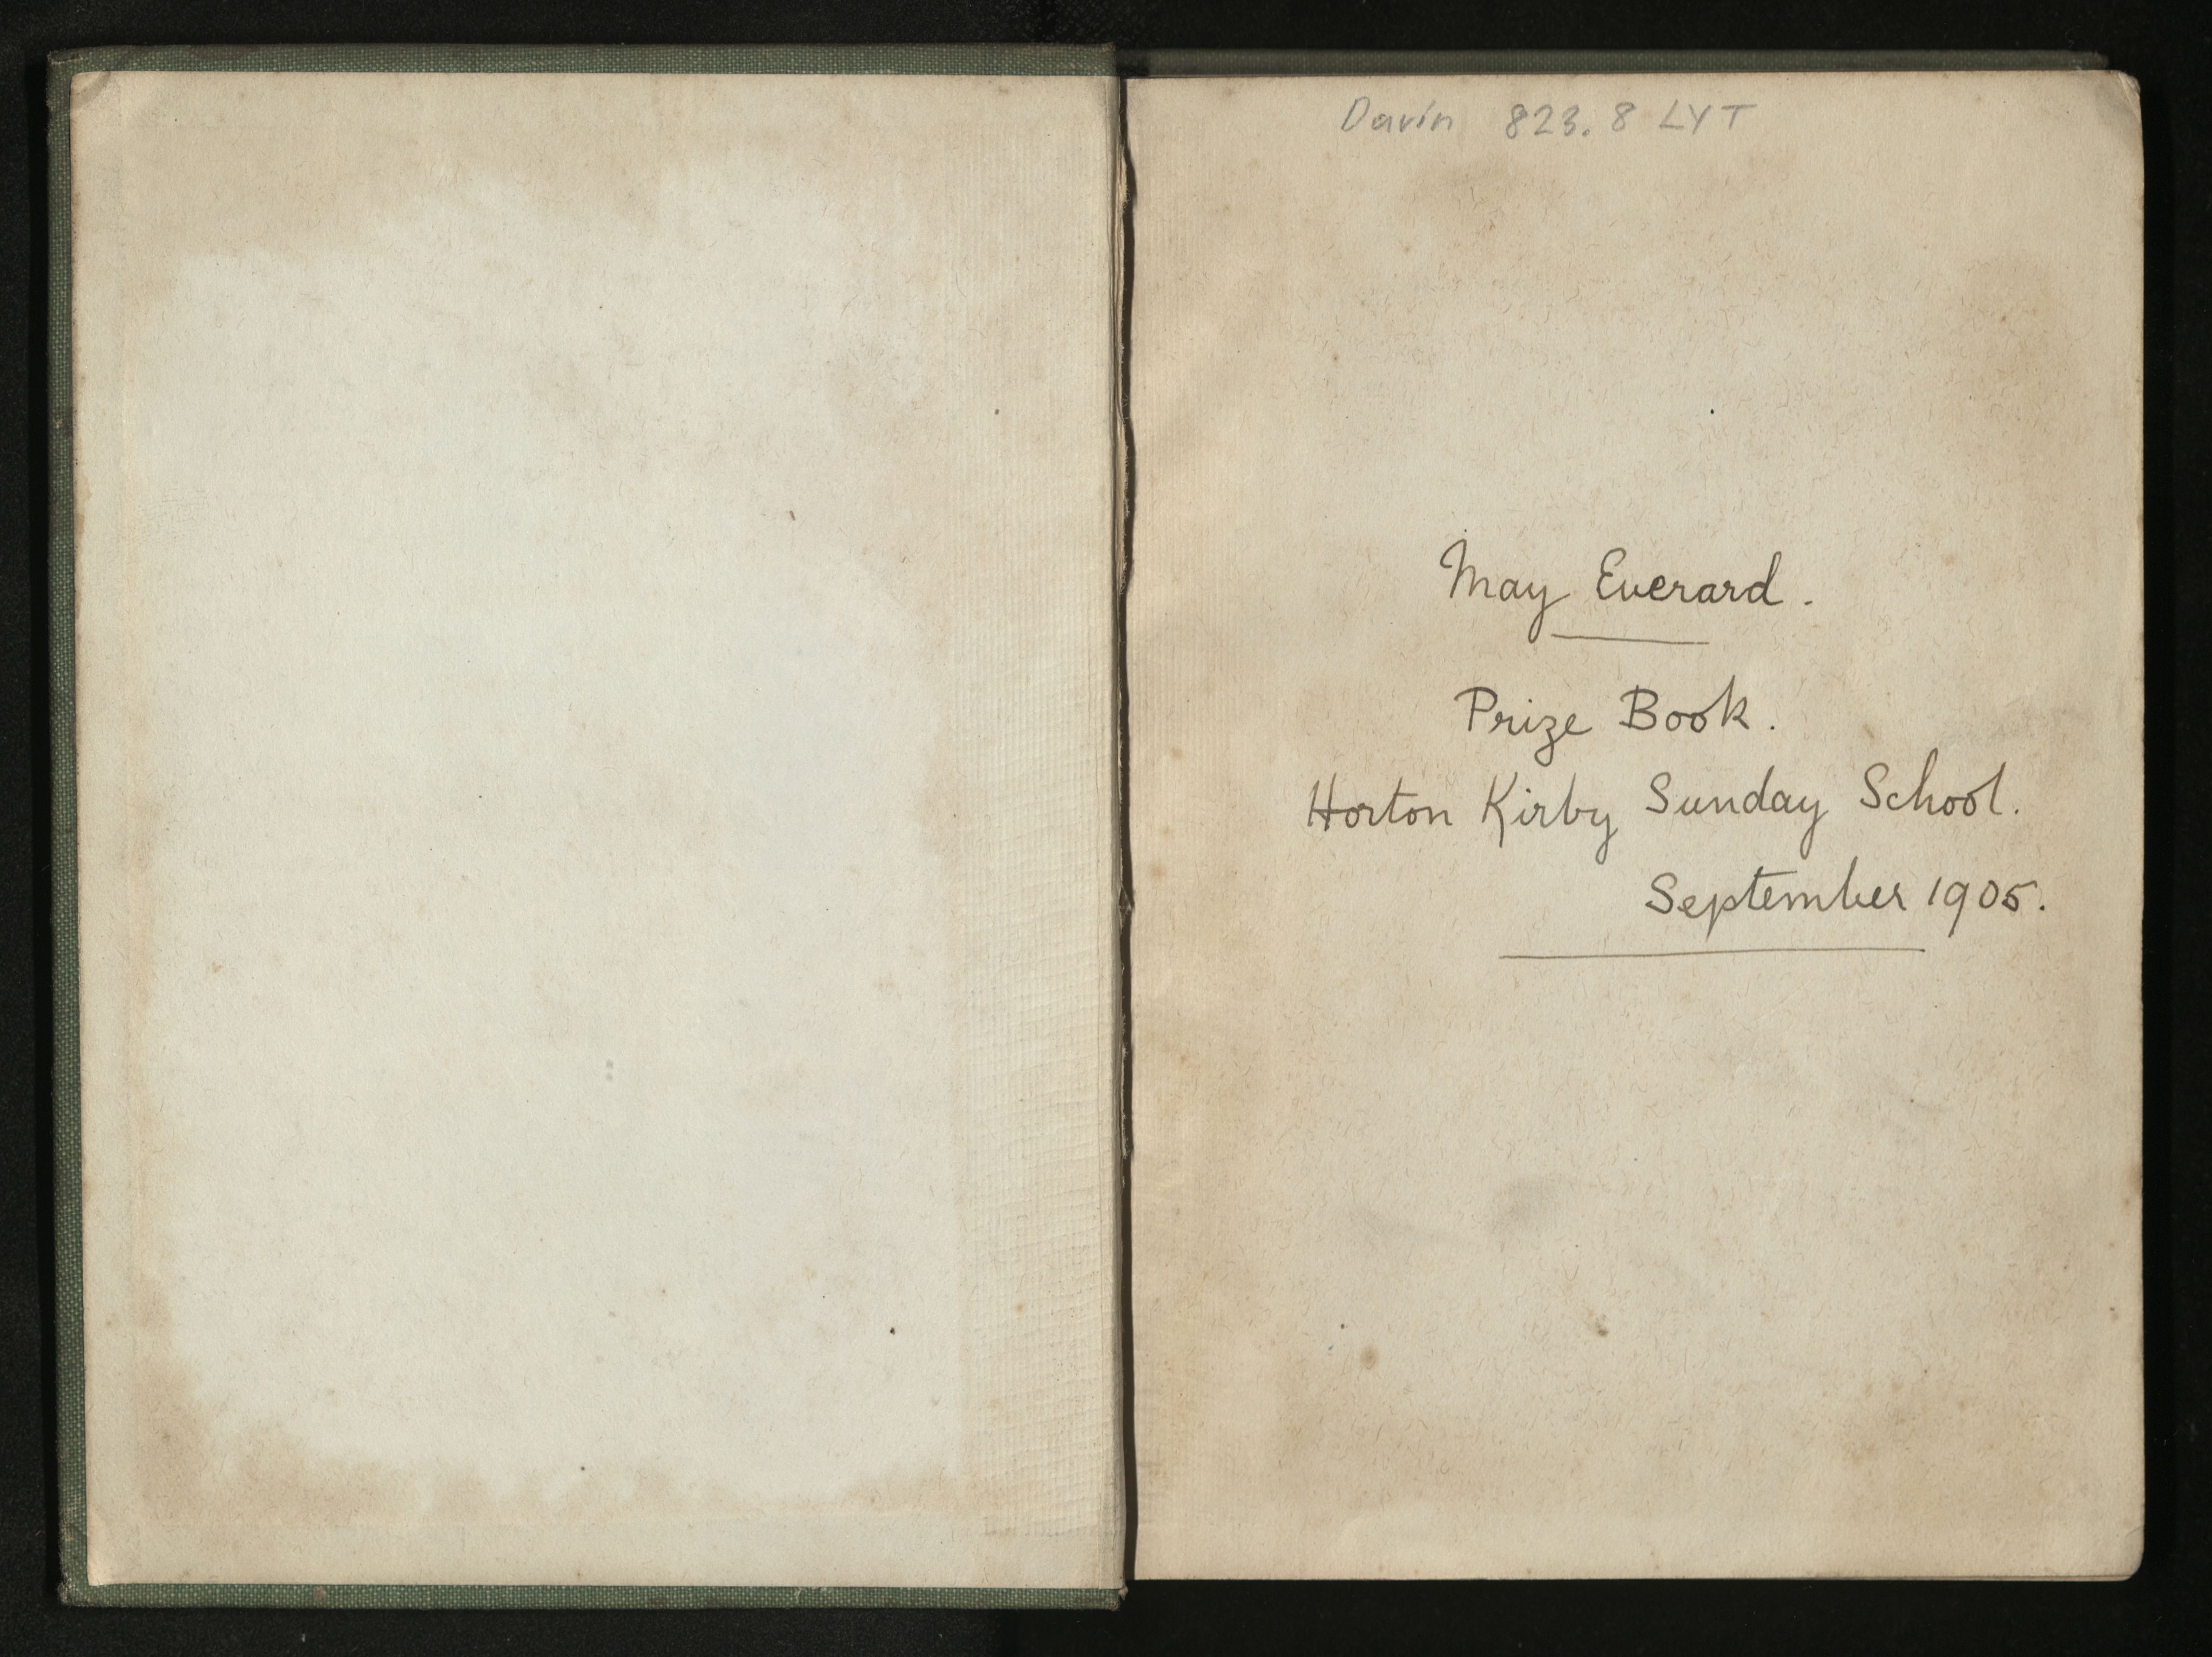 Davin 823.8 LYT
May Everard.
Prize Book.
Horton Kirby Sunday School.
September 1905.